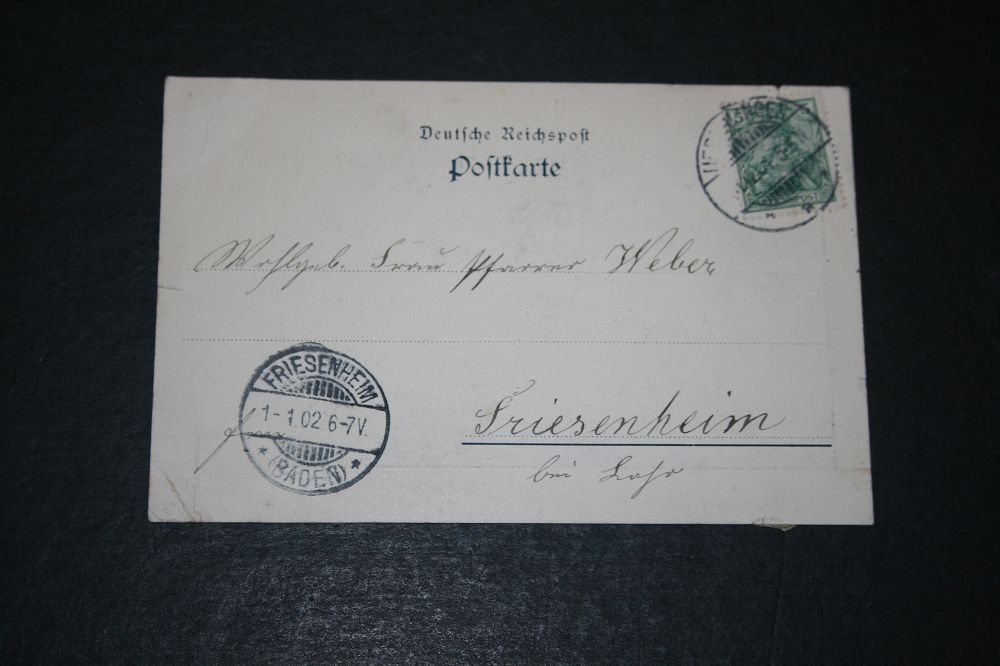 Deutsche Reichspost
Postkarte
Wohlgeb. Frau Pfarrer Weber
FRIESENHEIM
1-1.02 6-7V.
* (BADEN) *
Friesenheim
bei Lahr